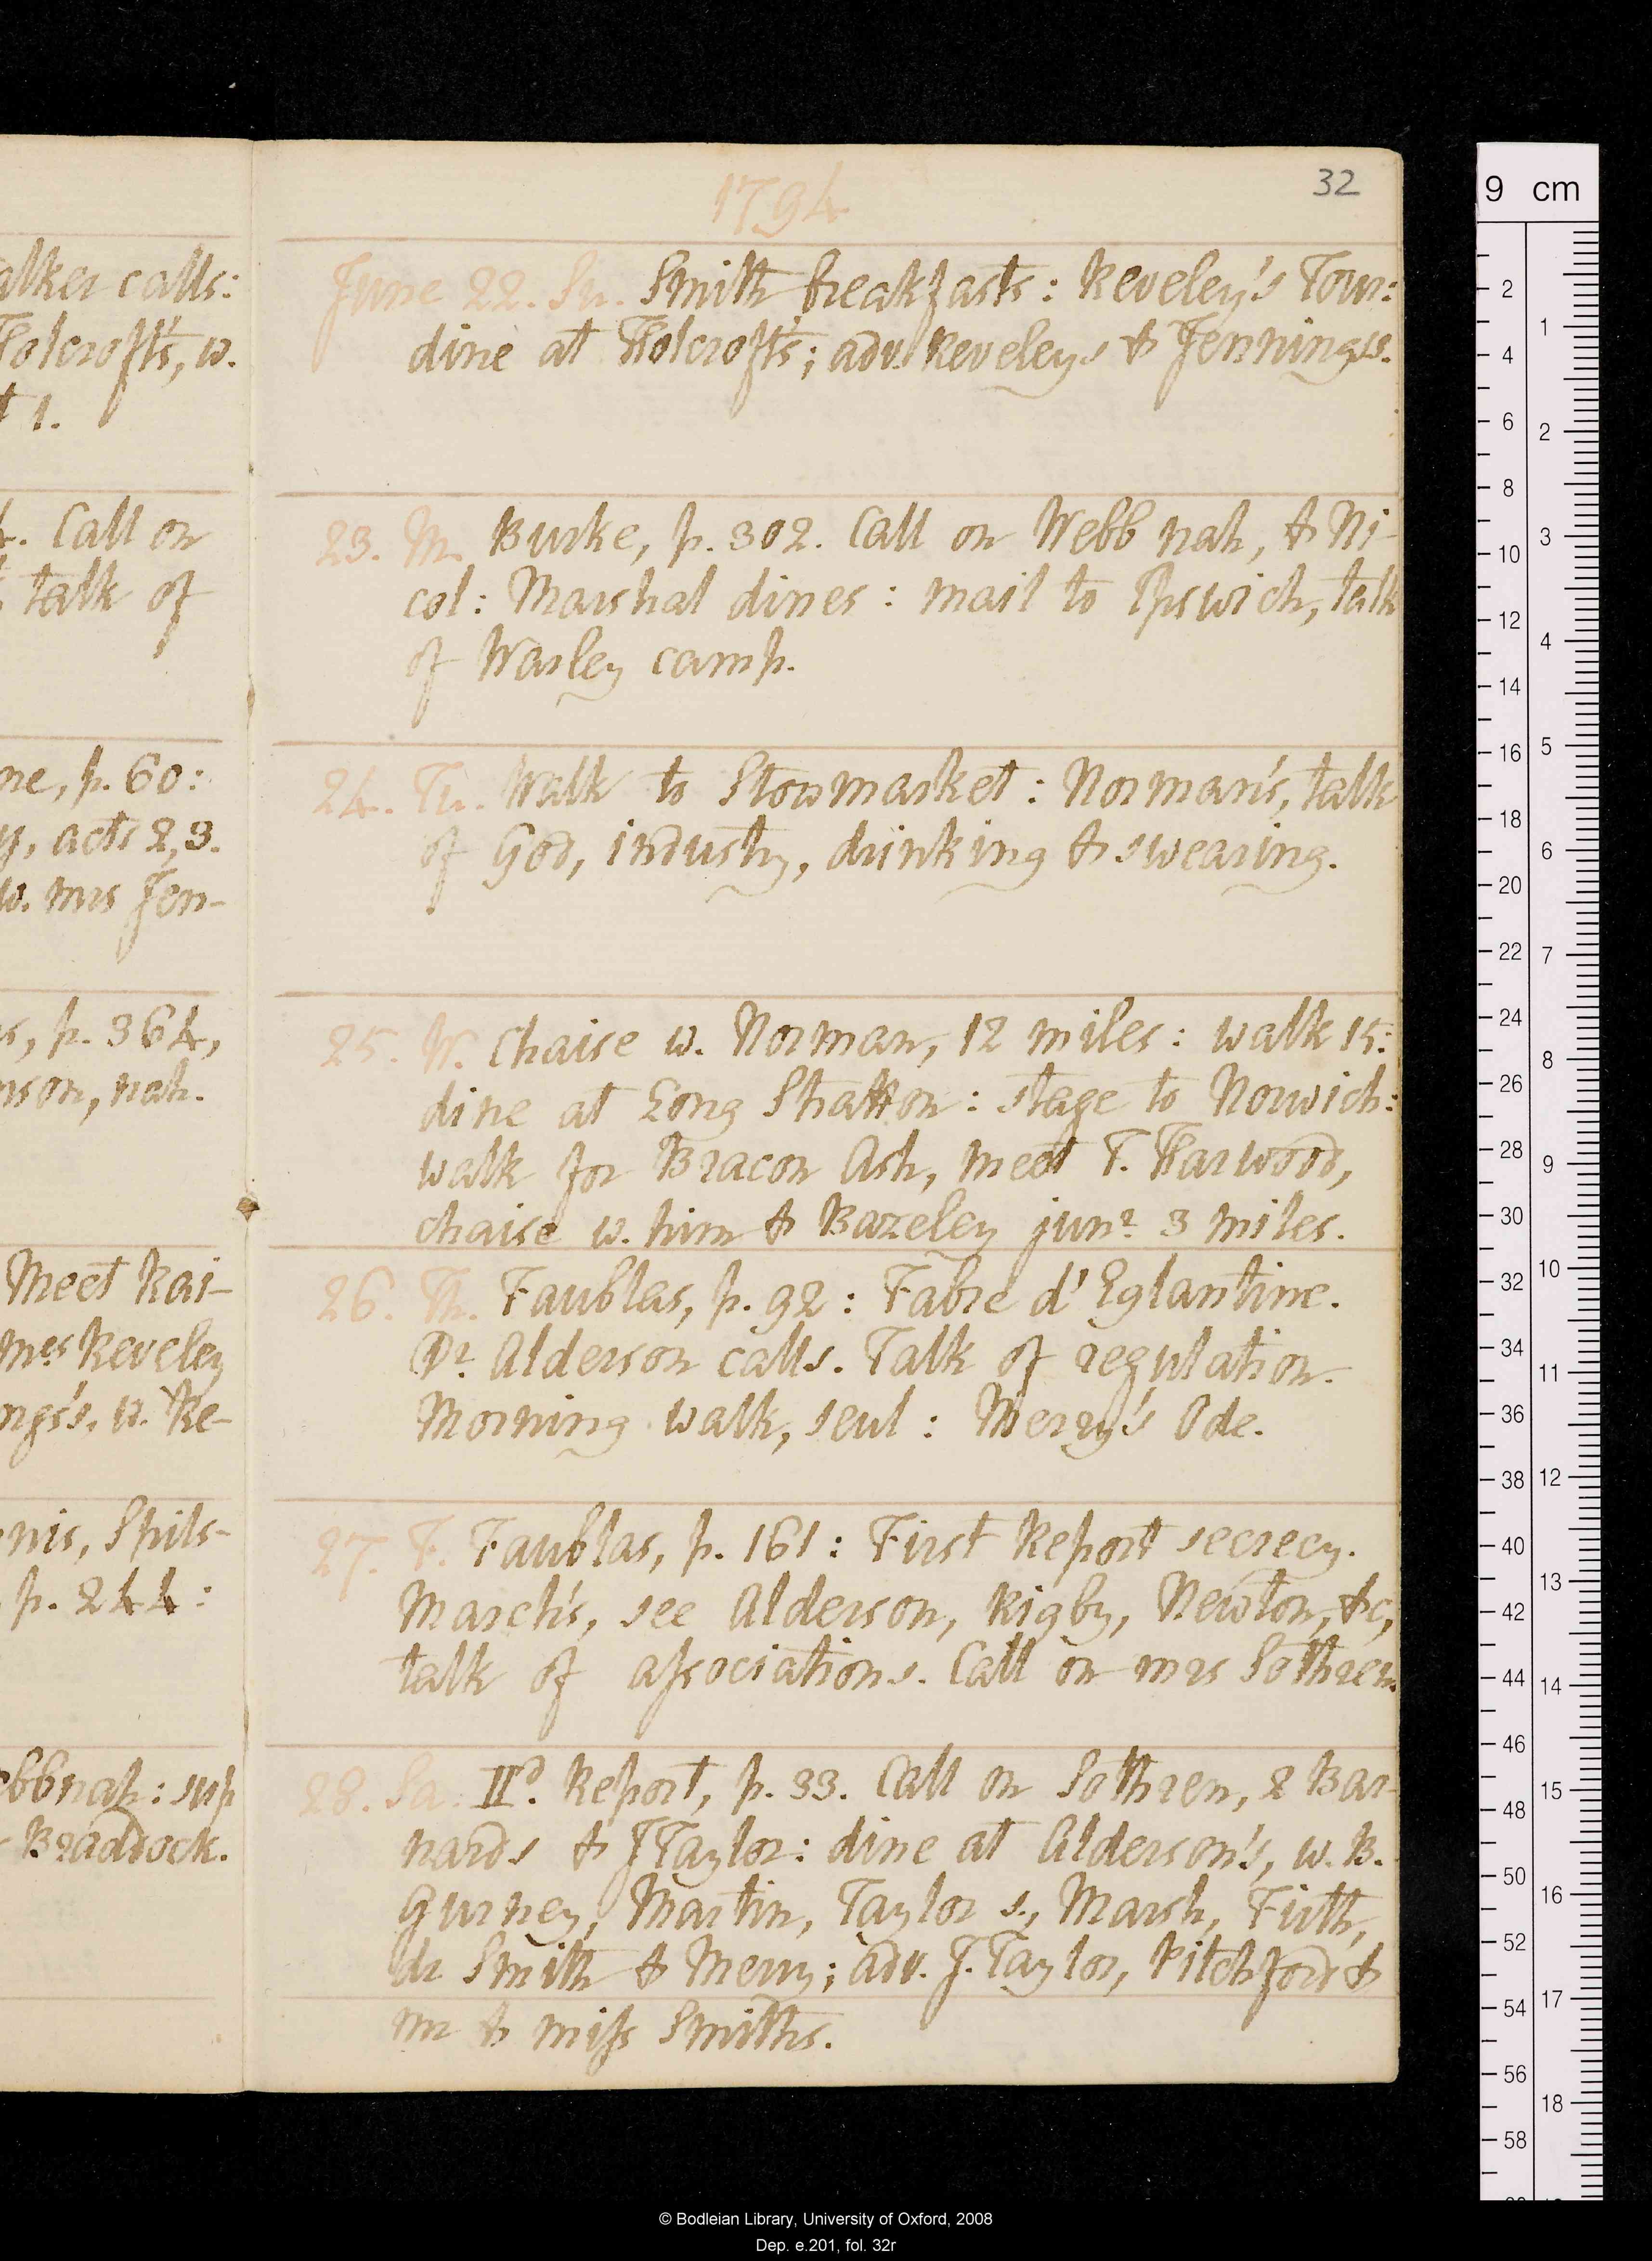 alker calls:
Holcroft's, w.
t 1.
. Call on
talk of
ne, p. 60:
y, acts 2, 3.
w. mrs Jen-
s, p. 364,
nson, nah.
Meet Rai-
Mrs Reveley
ngs's, w. Re-
nis, Spils-
p. 244:
bbnah: sup
Braddock.
1794
32
June 22. Su. Smith breakfasts: Reveley's Tour:
dine at Holcroft's; adv. Reveleys & Jennings's.
23. M. Burke, p. 302. Call on Webb nah, & Ni-
col: Marshal dines: mail to Ipswich, talk
of Warley camp.
24. Tu. Walk to Stowmarket: Norman's, talk
of God, industry, drinking & swearing.
25. W. Chaise w. Norman, 12 miles: walk 15:
dine at Long Stratton: stage to Norwich:
walk for Bracon Ash, meet T. Harwood,
chaise w. him & Bazeley junr. 3 miles.
26. Th. Faublas, p. 92: Fabre d'Eglantine.
Dr. Alderson calls. Talk of regulation.
Morning walk, seul: Merry's Ode.
27. F. Faublas, p. 161: First Report secrecy.
March's, see Alderson, Rigby, Newton, &c,
talk of associations. Call on mrs Sothren.
28. Sa. IId. Report, p. 33. Call on Sothren, 2 Bar-
nards & J Taylor: dine at Alderson's, w. B.
Gurney, Martin, Taylor s., Marsh, Firth,
dr Smith & Merry; adv. J. Taylor, Pitchford &
mr & miss Smiths.
9 cm
2
4
6
8
10
12
14
16
18
20
22
24
26
28
30
32
34
36
38
40
42
44
46
48
50
52
54
56
58
1
2
3
4
5
6
7
8
9
10
11
12
13
14
15
16
17
18
© Bodleian Library, University of Oxford, 2008
Dep. e.201, fol. 32r